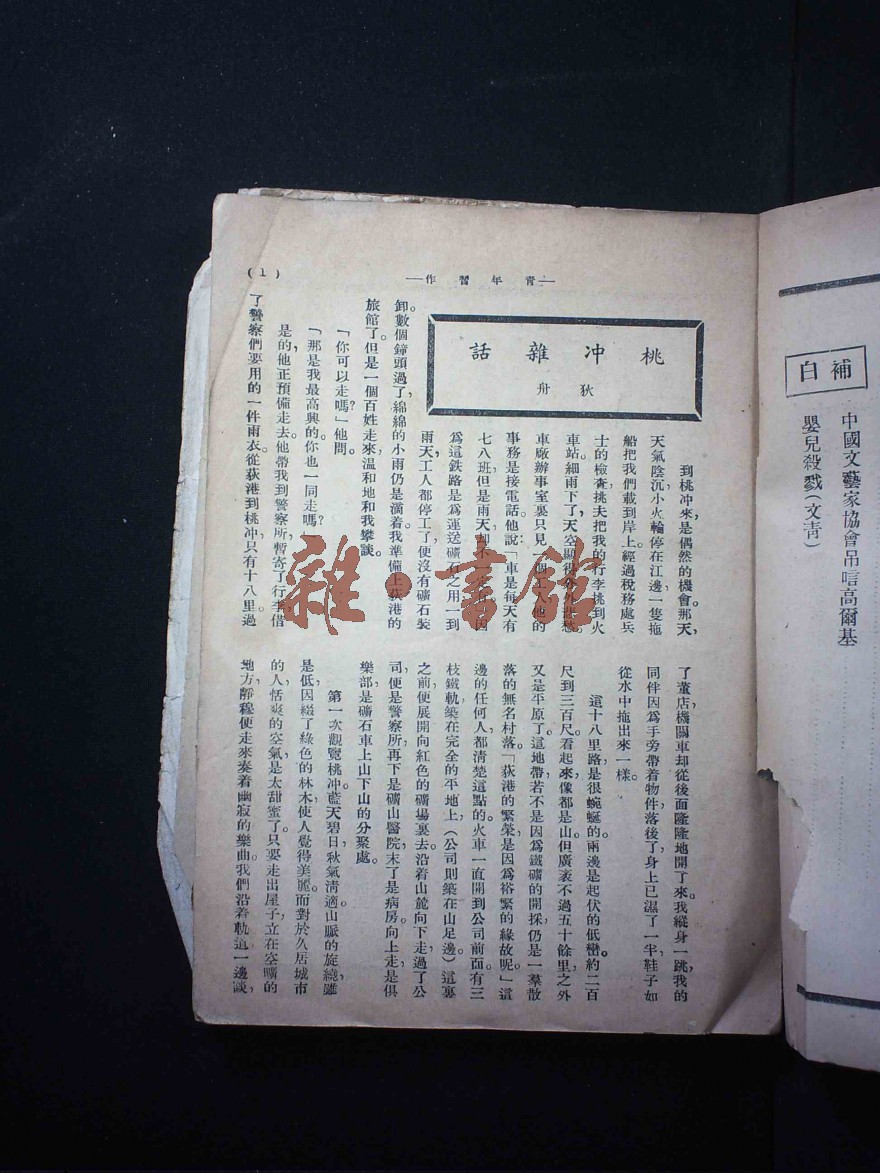 補白
中國文藝家協會吊唁高爾基
嬰兒殺戮（文青）
—青年習作—
(1)
桃冲雜話
狄舟
到桃冲來是偶然的機會。那天，
天氣陰沉，小火輪停在江邊，一隻拖
船把我們載到岸上。經過稅務處兵
士的檢查，挑夫把我的行李挑到火
車站。細雨下了，天空顯得分外悲愁。
車廠辦事室裏只見一個工人，他的
事務是接電話。他說：「車是每天有
七八班，但是雨天，却不一定，因
爲這鐵路是爲運送礦石之用，一到
雨天，工人都停工了，便沒有礦石裝
卸。數個鐘頭過了，綿綿的小雨仍是滴着。我準備上荻港的
旅館了。但是一個百姓走來，溫和地和我攀談。
「你可以走嗎？」他問。
「那是我最高興的。你也一同走嗎？」
是的，他正預備走去。他帶我到警察所，暫寄了行李，借
了警察們要用的一件雨衣。從荻港到桃冲只有十八里。過
了董店，機關車却從後面隆隆地開了來。我縱身一跳，我的
同伴因爲手旁帶着物件落後了，身上已濕了一半，鞋子如
從水中拖出來一樣。
這十八里路是很蜿蜒的。兩邊是起伏的低巒。約二百
尺到三百尺。看起來像都是山，但廣袤不過五十餘里之外
又是平原了。這地帶若不是因爲鐵礦的開採，仍是一羣散
落的無名村落。「荻港的繁榮，是因爲裕繁的緣故呢。」這
邊的任何人都清楚這點的。火車一直開到公司前面。有三
枝鐵軌築在完全的平地上（公司則築在山足邊）。這裏
之前便展開向紅色的礦場裏去。沿着山麓向下走，過了公
司，便是警察所，再下是礦山醫院，末了是病房。向上走，是俱
樂部，是礦石車上山下山的分聚處。
第一次觀覽桃冲，藍天碧日，秋氣清適。山脈的旋繞雖
是低，因綴了綠色的林木，使人覺得美麗。而對於久居城市
的人，恬爽的空氣是太甜蜜了。只要走出屋子，立在空曠的
地方，靜穆便走來奏着幽寂的樂曲。我們沿着軌道一邊談，
雜·書館